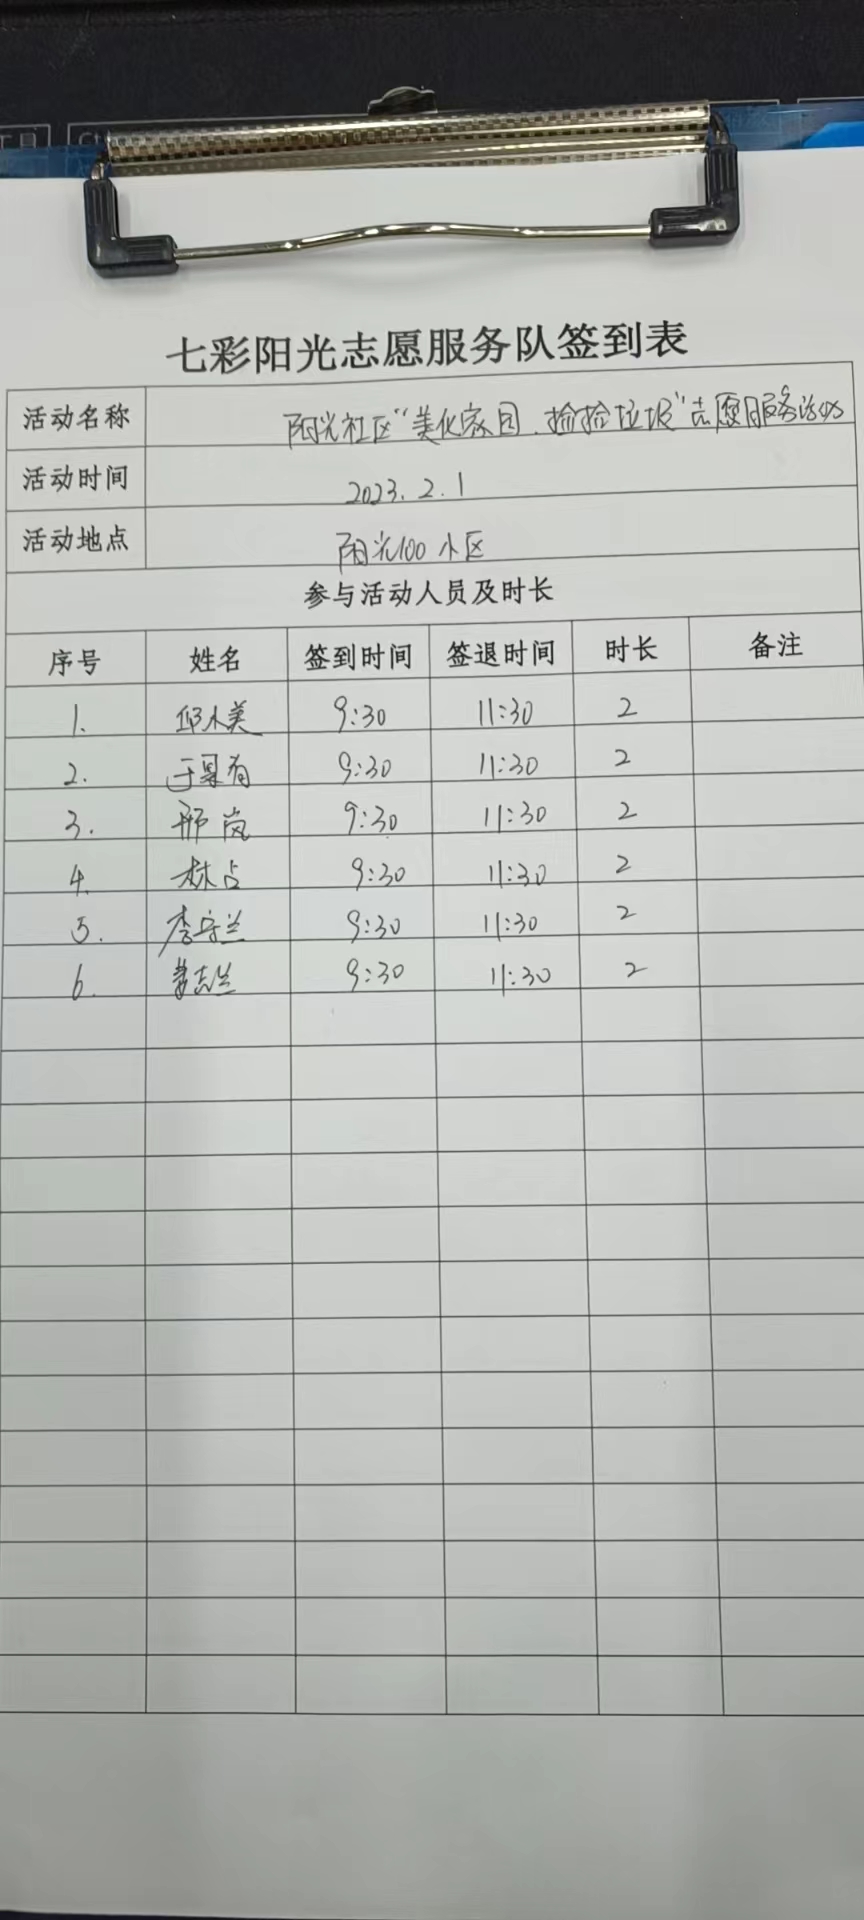 七彩阳光志愿服务队签到表
活动名称 阳光社区“美化家园、捡捡垃圾”志愿服务活动
活动时间 2023.2.1
活动地点 阳光100小区
参与活动人员及时长
序号 姓名 签到时间 签退时间 时长 备注
1. 邱小美 9:30 11:30 2
2. 9:30 11:30 2
3. 邢岚 9:30 11:30 2
4. 林占 9:30 11:30 2
5. 李守兰 9:30 11:30 2
6. 姜志兰 9:30 11:30 2